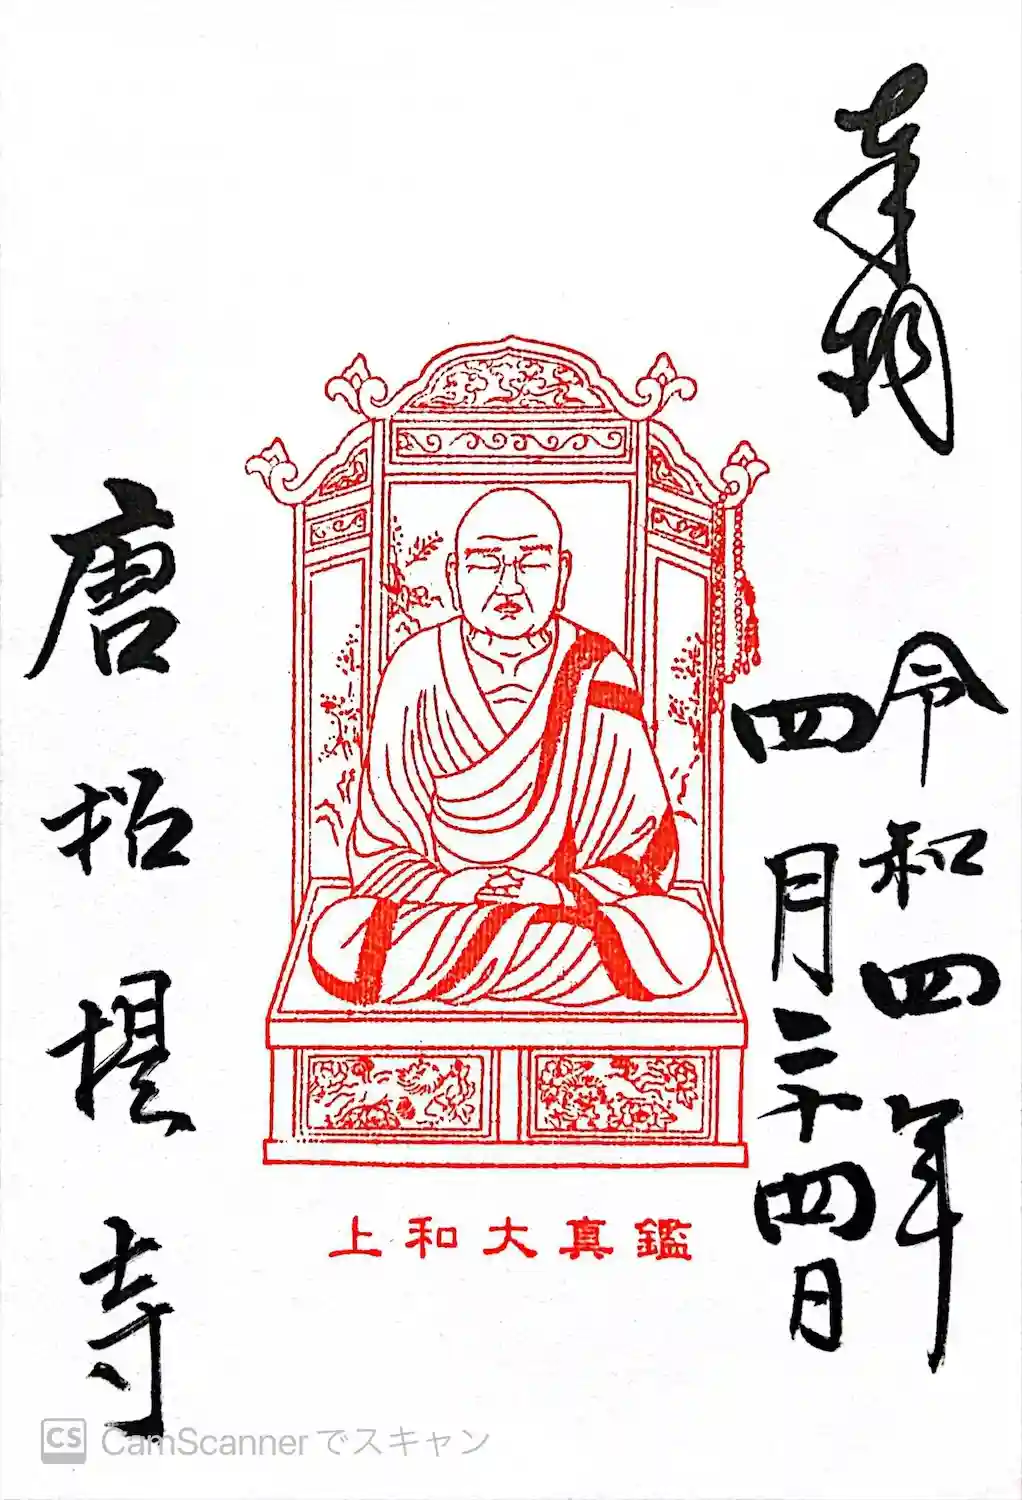 奉拝
令和四年
四月二十四日
上和大真鑑
唐招提寺
CS CamScannerでスキャン